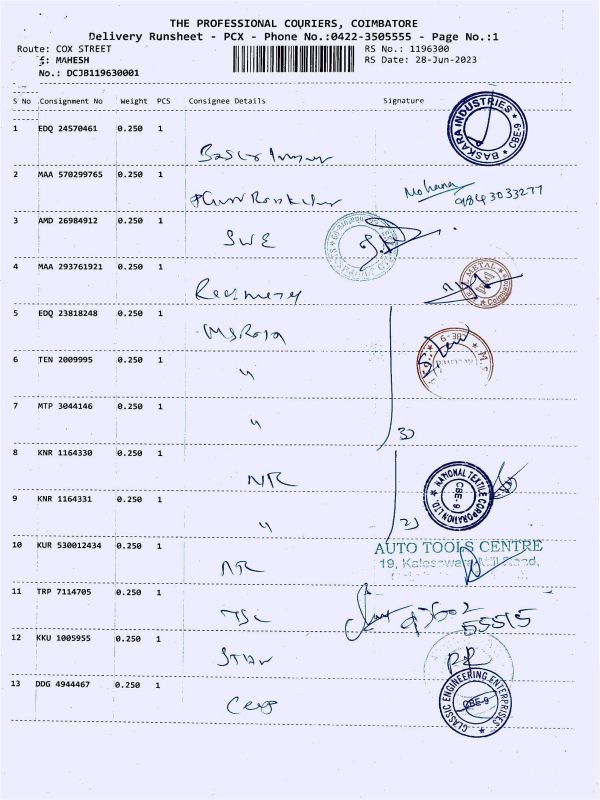 THE PROFESSIONAL COURIERS, COIMBATORE
Delivery Runsheet - PCX - Phone No.:0422-3505555 - Page No.:1
Route: COX STREET RS No.: 1196300
: MAHESH RS Date: 28-Jun-2023
No.: DCJB119630001
S No Consignment No Weight PCS Consignee Details Signature
1 EDQ 24570461 0.250 1
BASKARA INDUSTRIES CBE-9
2 MAA 570299765 0.250 1
Mohana
9843033277
3 AMD 26984912 0.250 1
SWE
4 MAA 293761921 0.250 1
METAL
5 EDQ 23818248 0.250 1
6 TEN 2009995 0.250 1
"
7 MTP 3044146 0.250 1
" 3)
8 KNR 1164330 0.250 1
NR
NATIONAL TEXTILE CORPORATION LTD. CBE-9
9 KNR 1164331 0.250 1
" 2)
10 KUR 530012434 0.250 1
AUTO TOOLS CENTRE
19,
11 TRP 7114705 0.250 1
TSC
55515
12 KKU 1005955 0.250 1
13 DDG 4944467 0.250 1
CLASSIC ENGINEERING ENTERPRISES CBE-9